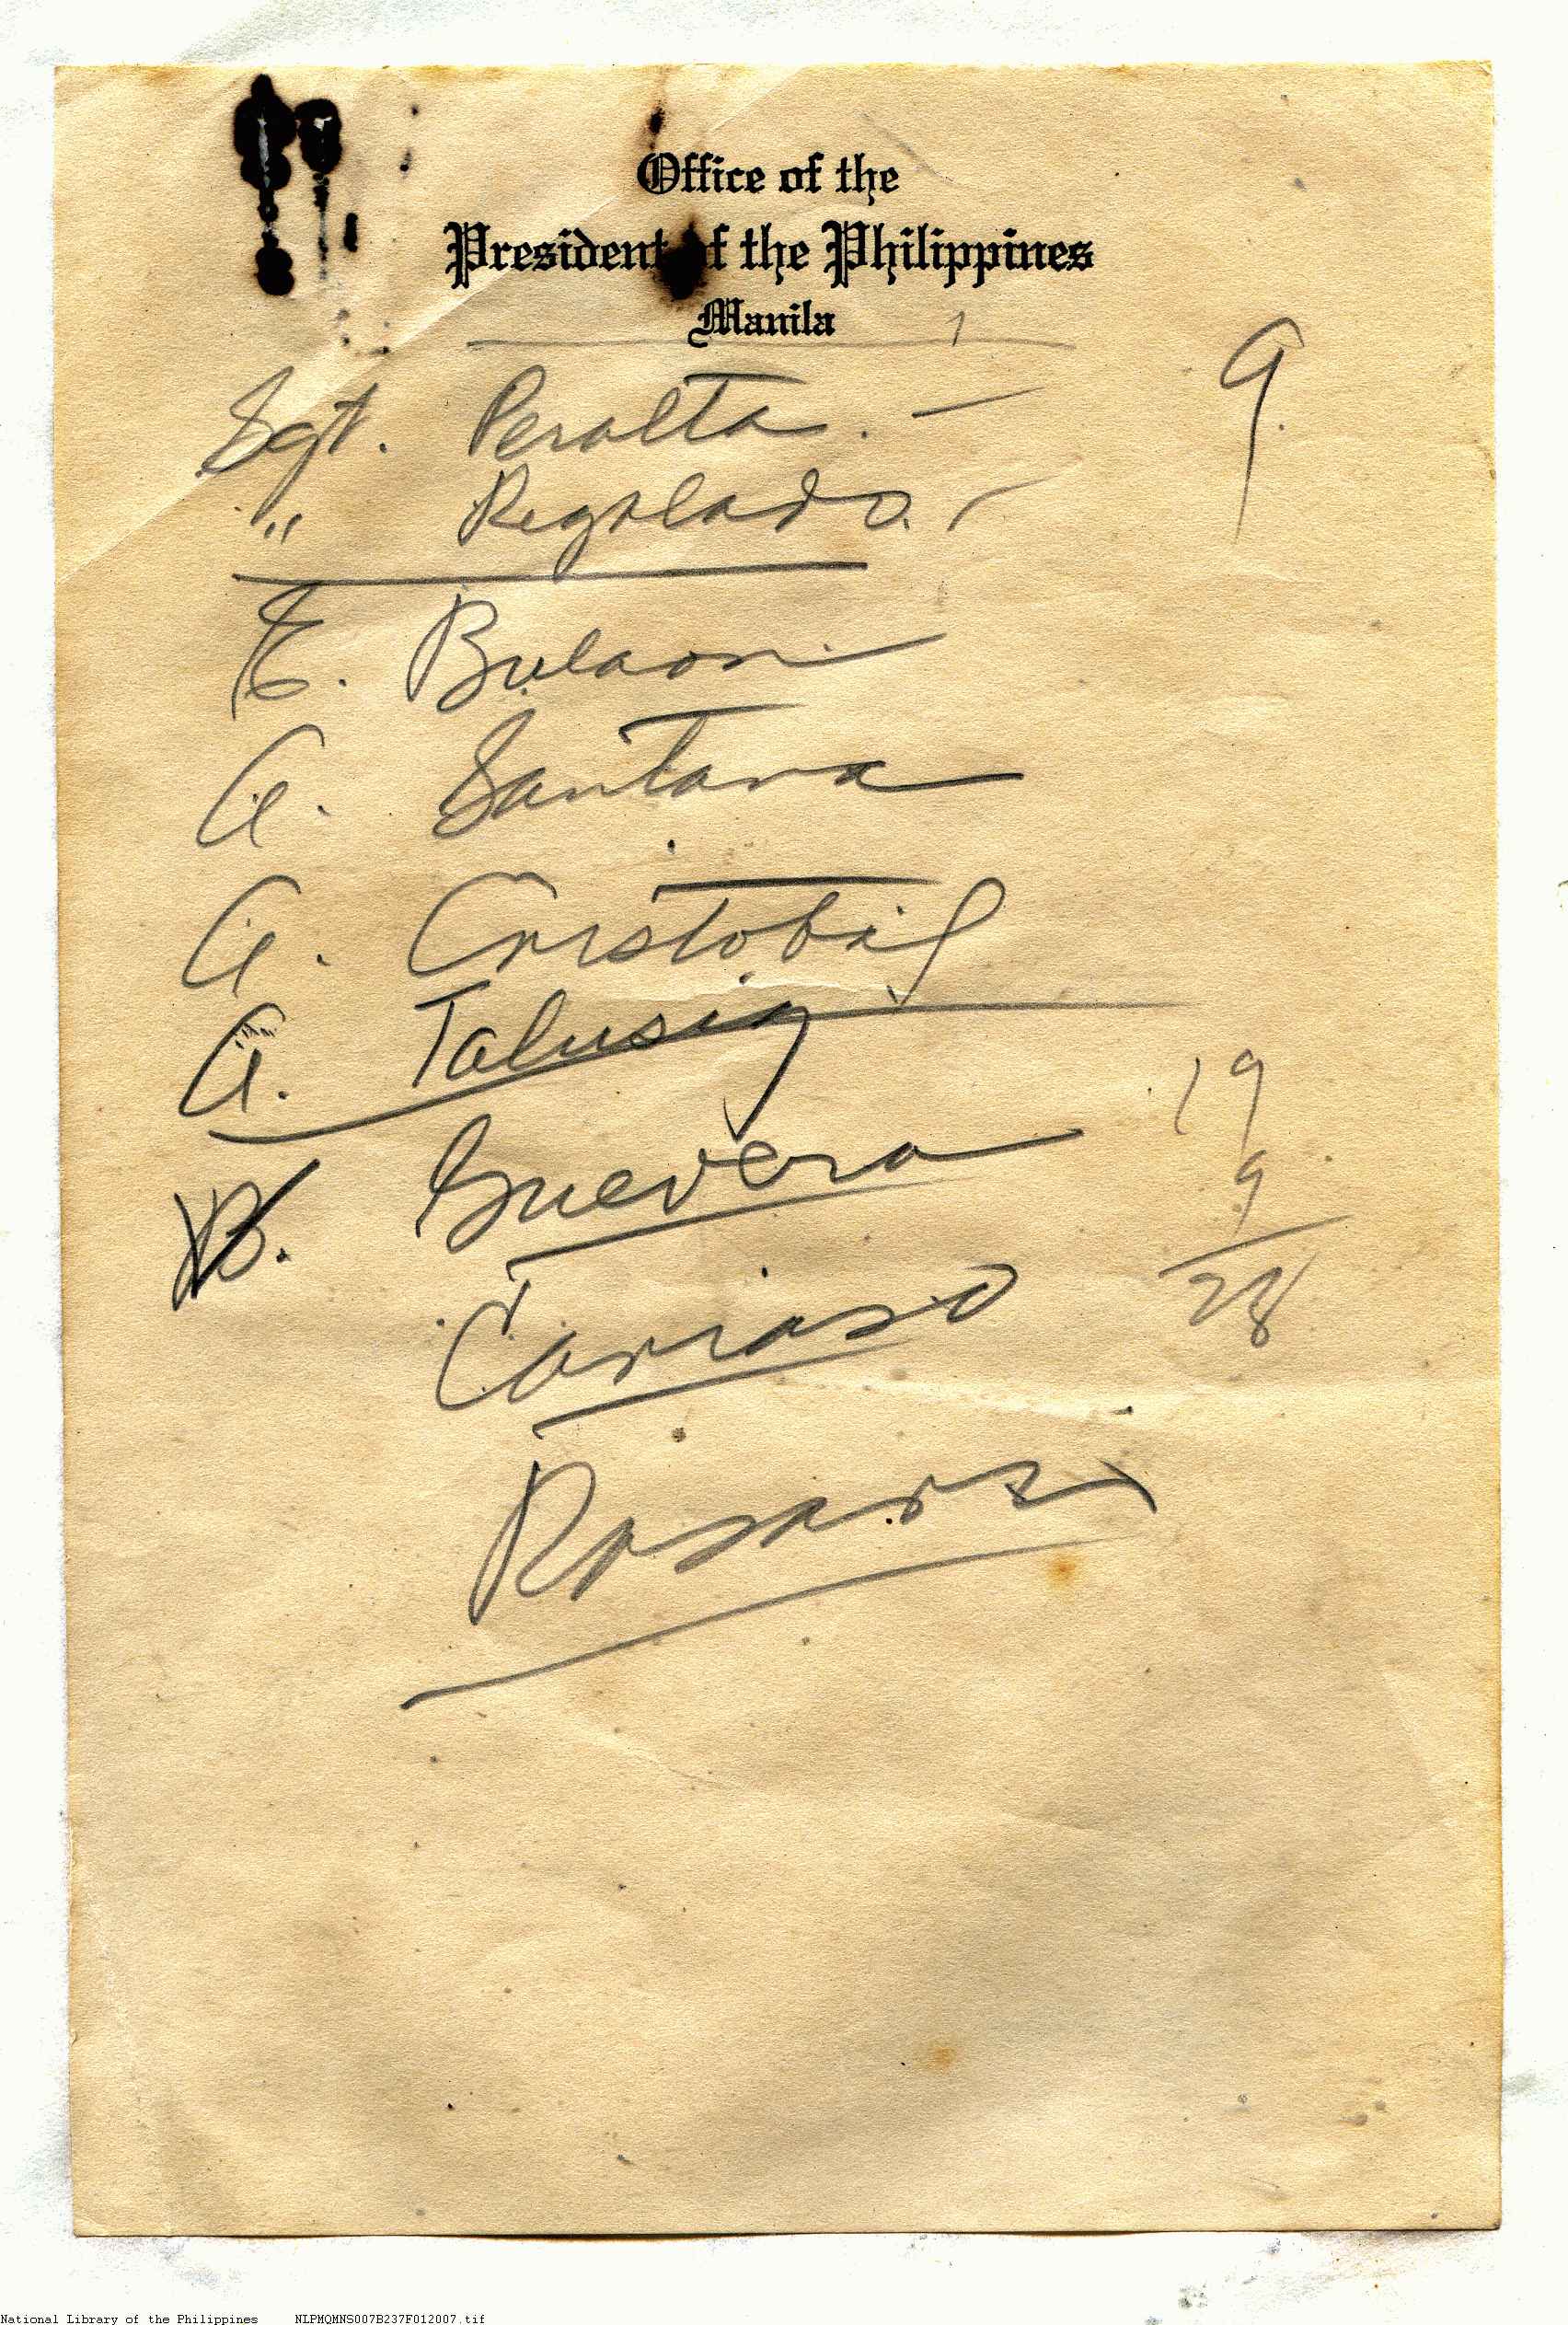 Office of the
President of the Philippines
Manila
Sgt. Peralta. — 9.
" Regalado. —
E. Bulaon
A. Santana
A. Cristobal
A. Talusig
B. Guevera
19
9
28
Cariaso
National Library of the Philippines NLPMQMNS007B237F012007.tif